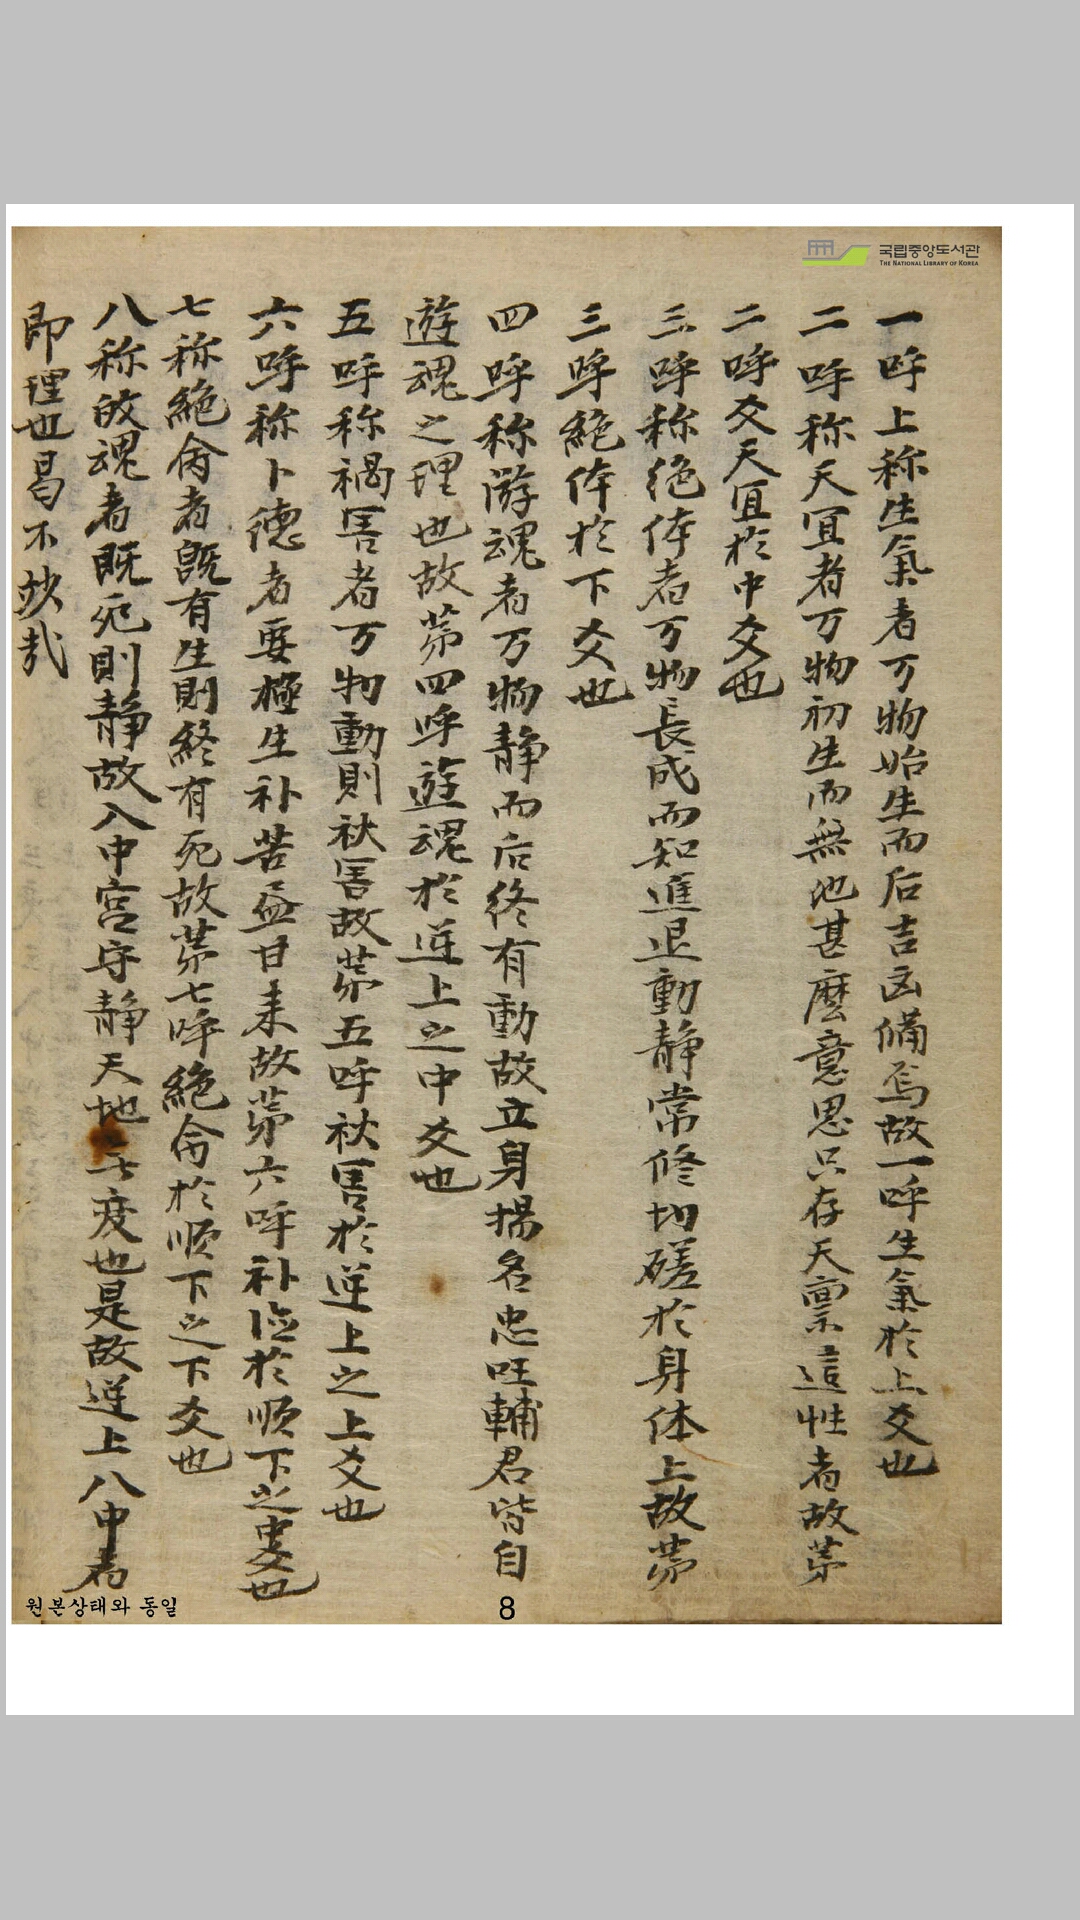 국립중앙도서관
THE NATIONAL LIBRARY OF KOREA
一呼上称生氣者万物始生而后吉凶備焉故一呼生氣於上爻也
二呼称天宜者万物初生而無他甚麽意思只存天禀這性者故苐
二呼爻天宜於中爻也
三呼称绝体者万物長成而知進退動静常修切磋於身体上故苐
三呼絶体於下爻也
四呼称游魂者万物静而后終有動故立身揚名忠旺輔君皆自
遊魂之理也故苐四呼遊魂於逆上之中爻也
五呼称禍害者万物動則禍害故苐五呼禍害於逆上之上爻也
六呼称卜德者要極生补苦益甘来故苐六呼补德於順下之中爻也
七称絶命者旣有生則終有死故苐七呼絶命於順下之下爻也
八称故魂者既死則静故入中宮守静天地 度也是故逆上八中者
即理也曷不妙哉
원본상태와 동일
8